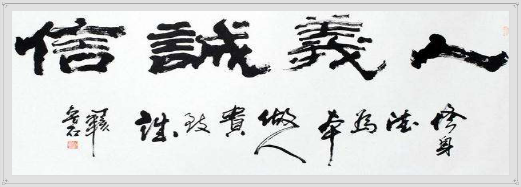 人義誠信
修身德为本做人貴致誠